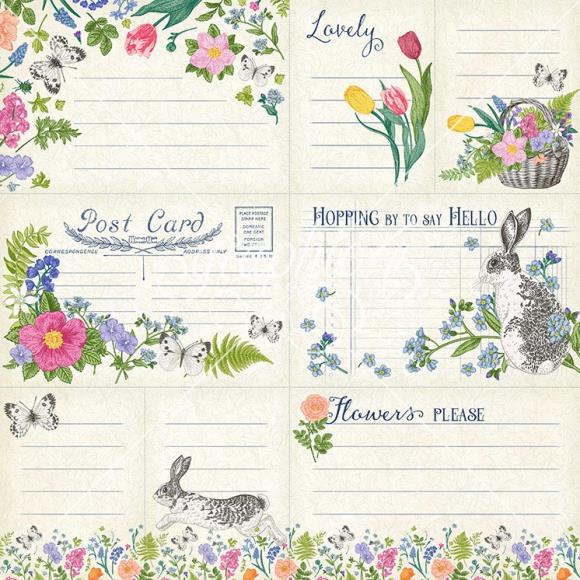 Lovely
Post Card
PLACE POSTAGE
STAMP HERE
DOMESTIC
ONE CENT
FOREIGN
TWO CENTS
CORRESPONDENCE
ADDRESS ONLY
HOPPING BY TO SAY HELLO
Flowers PLEASE